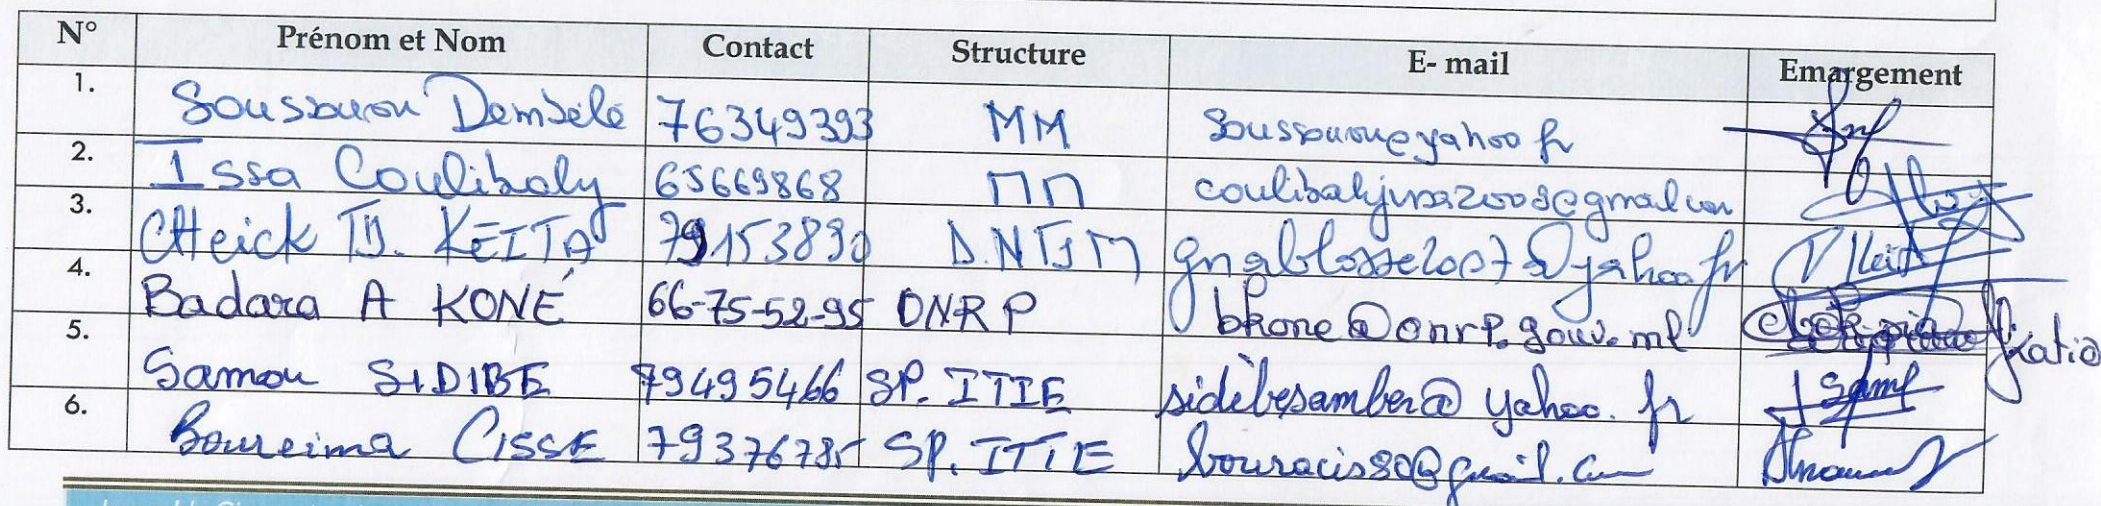 N° Prénom et Nom Contact Structure E- mail Emargement
1. Soussourou Dembele 76349393 MM soussourou@yahoo fr
2. Issa Coulibaly 65669868 MM
3. CHeick TD. KEITA 79153890 D.NTSM gnablosse2007@yahoo fr
4. Badara A KONÉ 66-75-52-95 ONRP bkone@onrp.gouv.ml
5. Samou SIDIBE 79495466 SP. ITIE sidibesamber@yahoo.fr
6. Boureima CISSE 79376785 SP. ITIE bouracis80@gmail.com